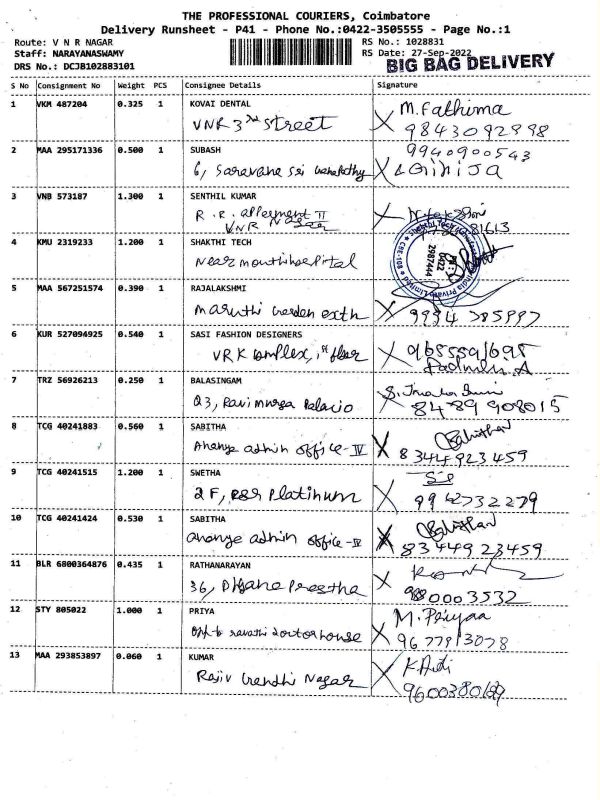 THE PROFESSIONAL COURIERS, Coimbatore
Delivery Runsheet - P41 - Phone No.:0422-3505555 - Page No.:1
Route: V N R NAGAR RS No.: 1028831
Staff: NARAYANASWAMY RS Date: 27-Sep-2022
DRS No.: DCJB102883101 BIG BAG DELIVERY
S No Consignment No Weight PCS Consignee Details Signature
1 VKM 487204 0.325 1 KOVAI DENTAL M. Fathima
VNR 3rd Street 9843092998
2 MAA 295171336 0.500 1 SUBASH 9940900543
6, Saravana Sri
3 VNB 573187 1.300 1 SENTHIL KUMAR
R. R. II
VNR Nagar
4 KMU 2319233 1.200 1 SHAKTHI TECH
Near
5 MAA 567251574 0.390 1 RAJALAKSHMI
Maruthi Garden extn
6 KUR 527094925 0.540 1 SASI FASHION DESIGNERS
VRK Complex, 1st floor
7 TRZ 56926213 0.250 1 BALASINGAM
8489908015
8 TCG 40241883 0.560 1 SABITHA
Ananya admin office-IV 8344923459
9 TCG 40241515 1.200 1 SWETHA
2F, Platinum 9942732279
10 TCG 40241424 0.530 1 SABITHA
Ananya admin office-IV 8344923459
11 BLR 6800364876 0.435 1 RATHANARAYAN
36, Prestha
12 STY 805022 1.000 1 PRIYA M. Priyaa
doctor house
13 MAA 293853897 0.060 1 KUMAR
Rajiv Gandhi Nagar